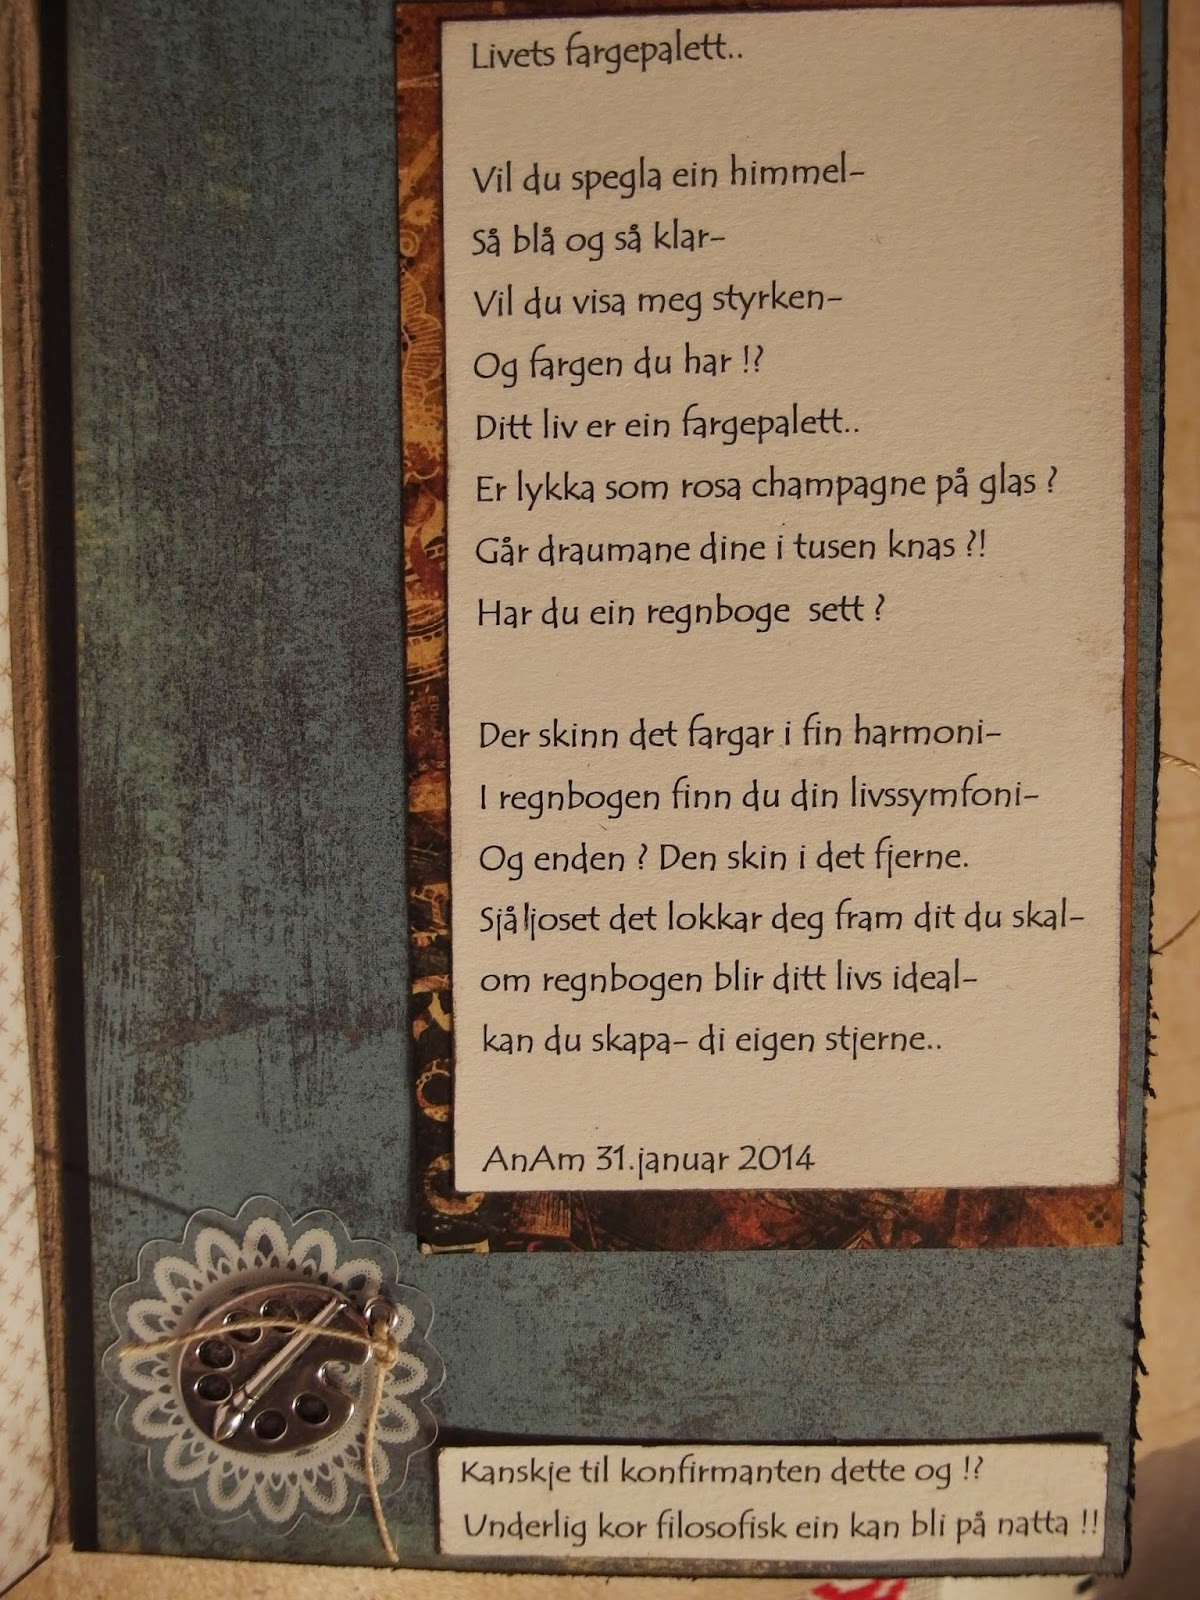 Livets fargepalett..
Vil du spegla ein himmel-
Så blå og så klar-
Vil du visa meg styrken-
Og fargen du har !?
Ditt liv er ein fargepalett..
Er lykka som rosa champagne på glas ?
Går draumane dine i tusen knas ?!
Har du ein regnboge sett ?
Der skinn det fargar i fin harmoni-
I regnbogen finn du din livssymfoni-
Og enden ? Den skin i det fjerne.
Sjåljoset det lokkar deg fram dit du skal-
om regnbogen blir ditt livs ideal-
kan du skapa- di eigen stjerne..
AnAm 31.januar 2014
Kanskje til konfirmanten dette og !?
Underlig kor filosofisk ein kan bli på natta !!